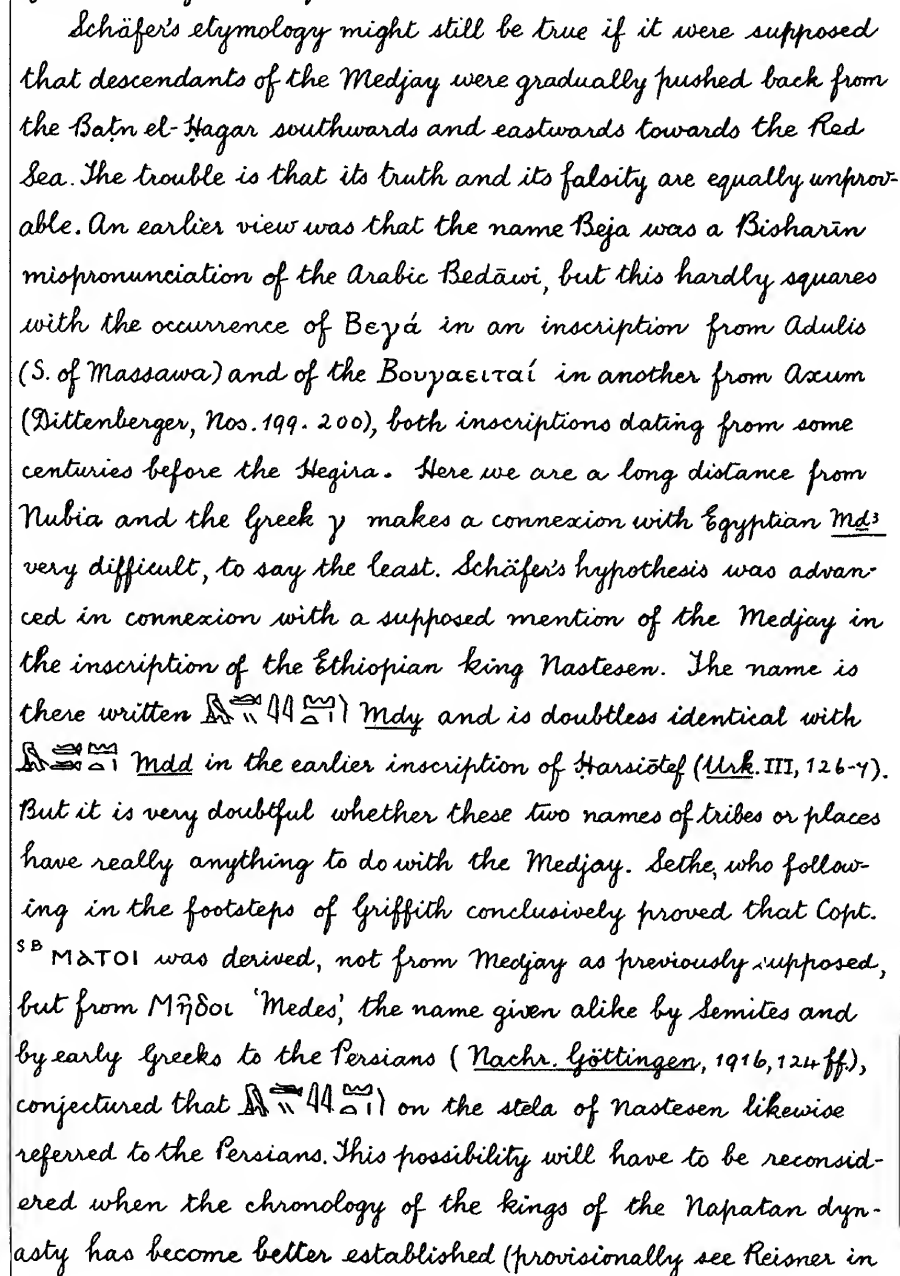 Schäfer's etymology might still be true if it were supposed
that descendants of the Medjay were gradually pushed back from
the Baṭn el-Ḥagar southwards and eastwards towards the Red
Sea. The trouble is that its truth and its falsity are equally unprov-
able. An earlier view was that the name Beja was a Bisharīn
mispronunciation of the Arabic Bedāwi, but this hardly squares
with the occurrence of Βεγά in an inscription from Adulis
(S. of Massawa) and of the Βουγαειταί in another from Axum
(Dittenberger, Nos. 199. 200), both inscriptions dating from some
centuries before the Hegira. Here we are a long distance from
Nubia and the Greek γ makes a connexion with Egyptian Mḏꜣ
very difficult, to say the least. Schäfer's hypothesis was advan-
ced in connexion with a supposed mention of the Medjay in
the inscription of the Ethiopian king Nastesen. The name is
there written Mdy and is doubtless identical with
Mdd in the earlier inscription of Ḥarsiōtef (Urk. III, 126-7).
But it is very doubtful whether these two names of tribes or places
have really anything to do with the Medjay. Sethe, who follow-
ing in the footsteps of Griffith conclusively proved that Copt.
SB ⲙⲁⲧⲟⲓ was derived, not from Medjay as previously supposed,
but from Μῆδοι 'Medes', the name given alike by Semites and
by early Greeks to the Persians (Nachr. Göttingen, 1916, 124 ff.),
conjectured that on the stela of Nastesen likewise
referred to the Persians. This possibility will have to be reconsid-
ered when the chronology of the kings of the Napatan dyn-
asty has become better established (provisionally see Reisner in